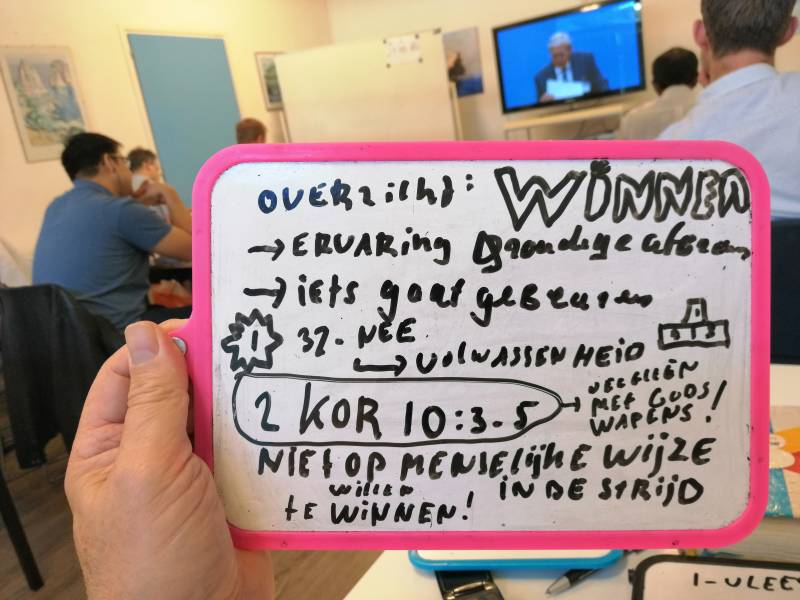 OVERzicht: WINNEN
→ ERVARing grondige
→ iets gaat gebeuren
1 32. NEE
→ VOLWASSENHEID
1 2 3
2 KOR 10:3-5
→ MET GODS
WAPENS!
NIET OP MENSELijKE WIJZE
willen IN DE STRIJD
te WINNEN!